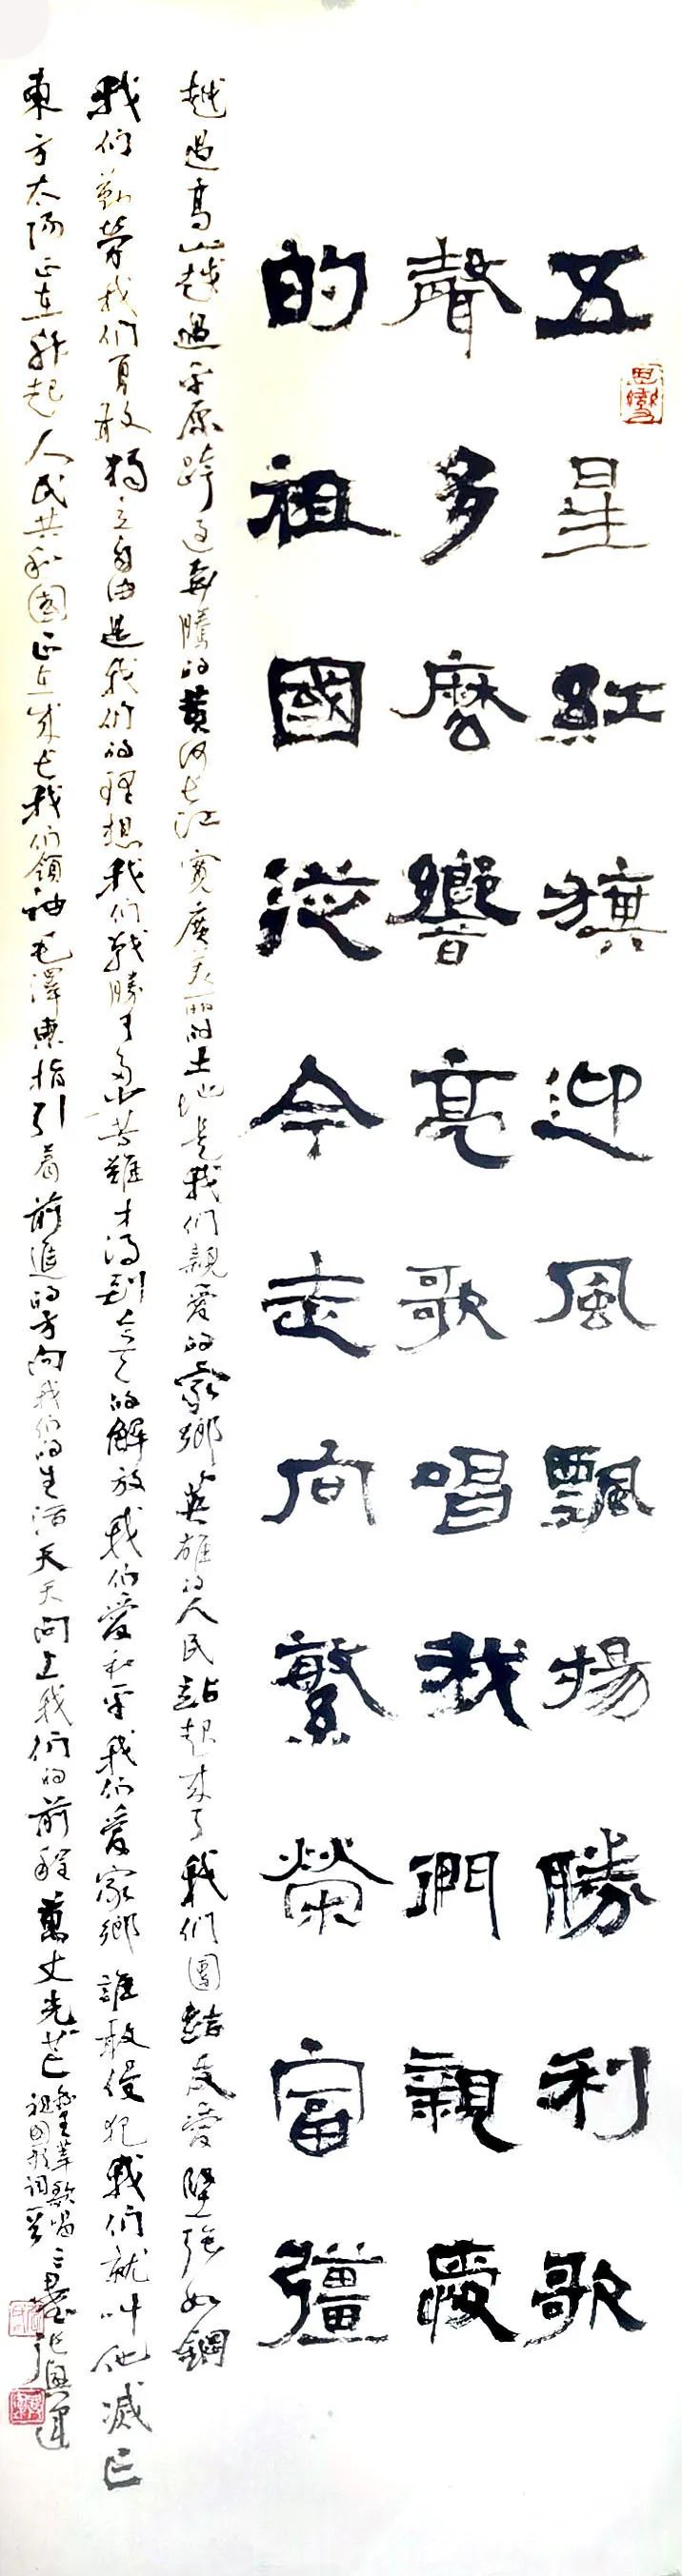 五星紅旗迎風飄揚勝利歌
聲多麽響亮歌唱我們親愛
的祖國從今走向繁榮富彊
越過高山越過平原跨過奔騰的黃河长江寬廣美麗的土地是我們親爱的家鄉英雄的人民站起來了我們團結友爱堅強如鋼
我们勤勞我们勇敢獨立自由是我们的理想我们戰勝了多少苦難才得到今天的解放我们爱和平我们爱家鄉誰敢侵犯我们就叫他滅亡
東方太陽正在升起人民共和國正在成长我们領袖毛澤東指引着前進的方向我们的生活天天向上我们的前程萬丈光芒
歌唱
祖国歌詞一首